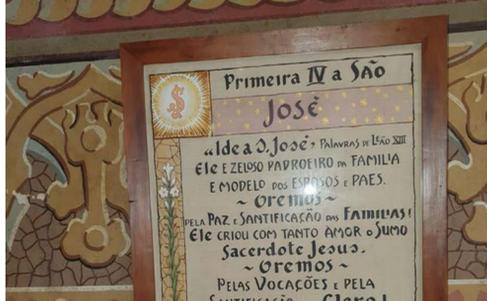 Primeira IV a São
José
"Ide a S. José", Palavras de Leão XIII
Ele é zeloso padroeiro da familia
e modelo dos esposos e paes.
~ Oremos ~
pela Paz e Santificação das Familias!
Ele criou com tanto amor o Sumo
Sacerdote Jesus.
~ Oremos ~
Pelas Vocações e pela
Santificação do Clero!